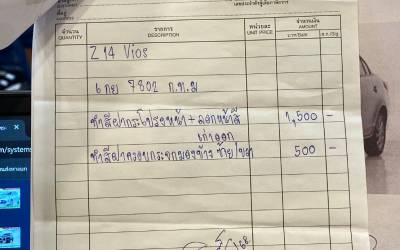 จำนวน
QUANTITY
รายการ
DESCRIPTION
หน่วยละ
UNIT PRICE
จำนวนเงิน
AMOUNT
214 Vios
7802 ก.ท.ม
ทำสีฝากระโปรงหน้า + ลอกหน้าสี 1,500 -
เก่าออก
ทำสีฝาครอบกระจกมองข้าง ซ้าย/ขวา 500 -
m/systems